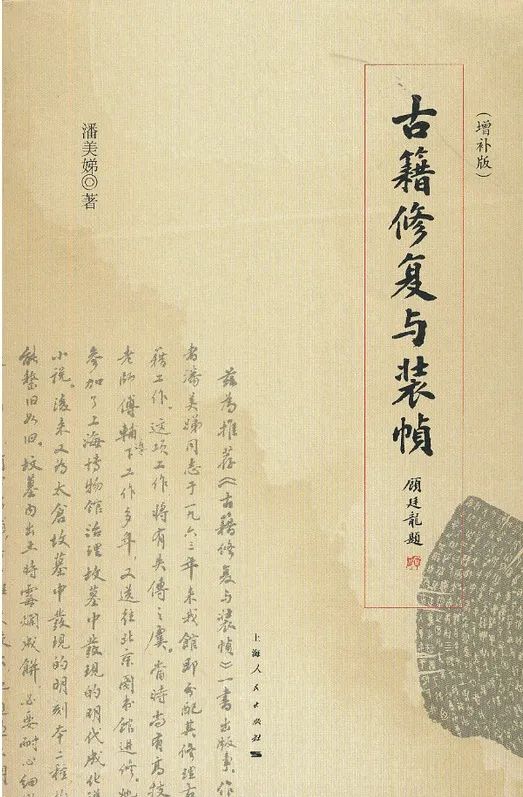 （增补版）
古籍修复与装帧
顾廷龙题
潘美娣◎著
上海人民出版社
兹为推荐《古籍修复与装帧》一书出版事，作
者潘美娣同志于一九六三年来我馆即分配其修理古
籍工作。这项工作将有失传之虞。当时尚有高技
老师傅辅导下工作多年，又送往北京图书馆进修。她
参加了上海博物馆治理坟墓中发现的明代成化说
小说。后来又为太仓坟墓中发现的明刻本二种
能整旧如旧。坟墓内出土时霉烂成饼，必要耐心细